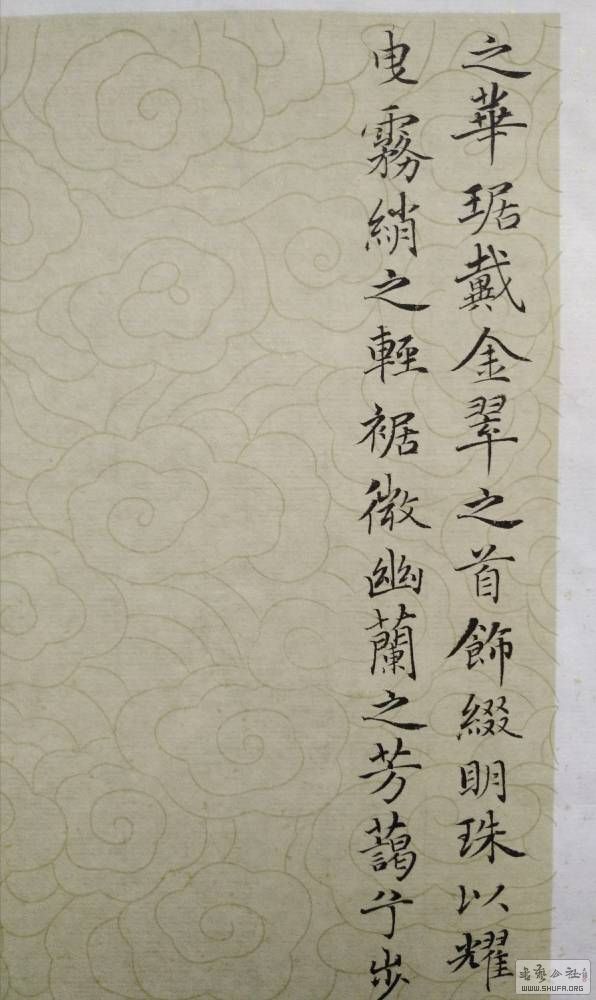 之華琚戴金翠之首飾綴明珠以耀
曳霧綃之輕裾微幽蘭之芳藹兮步
书艺公社
WWW.SHUFA.ORG